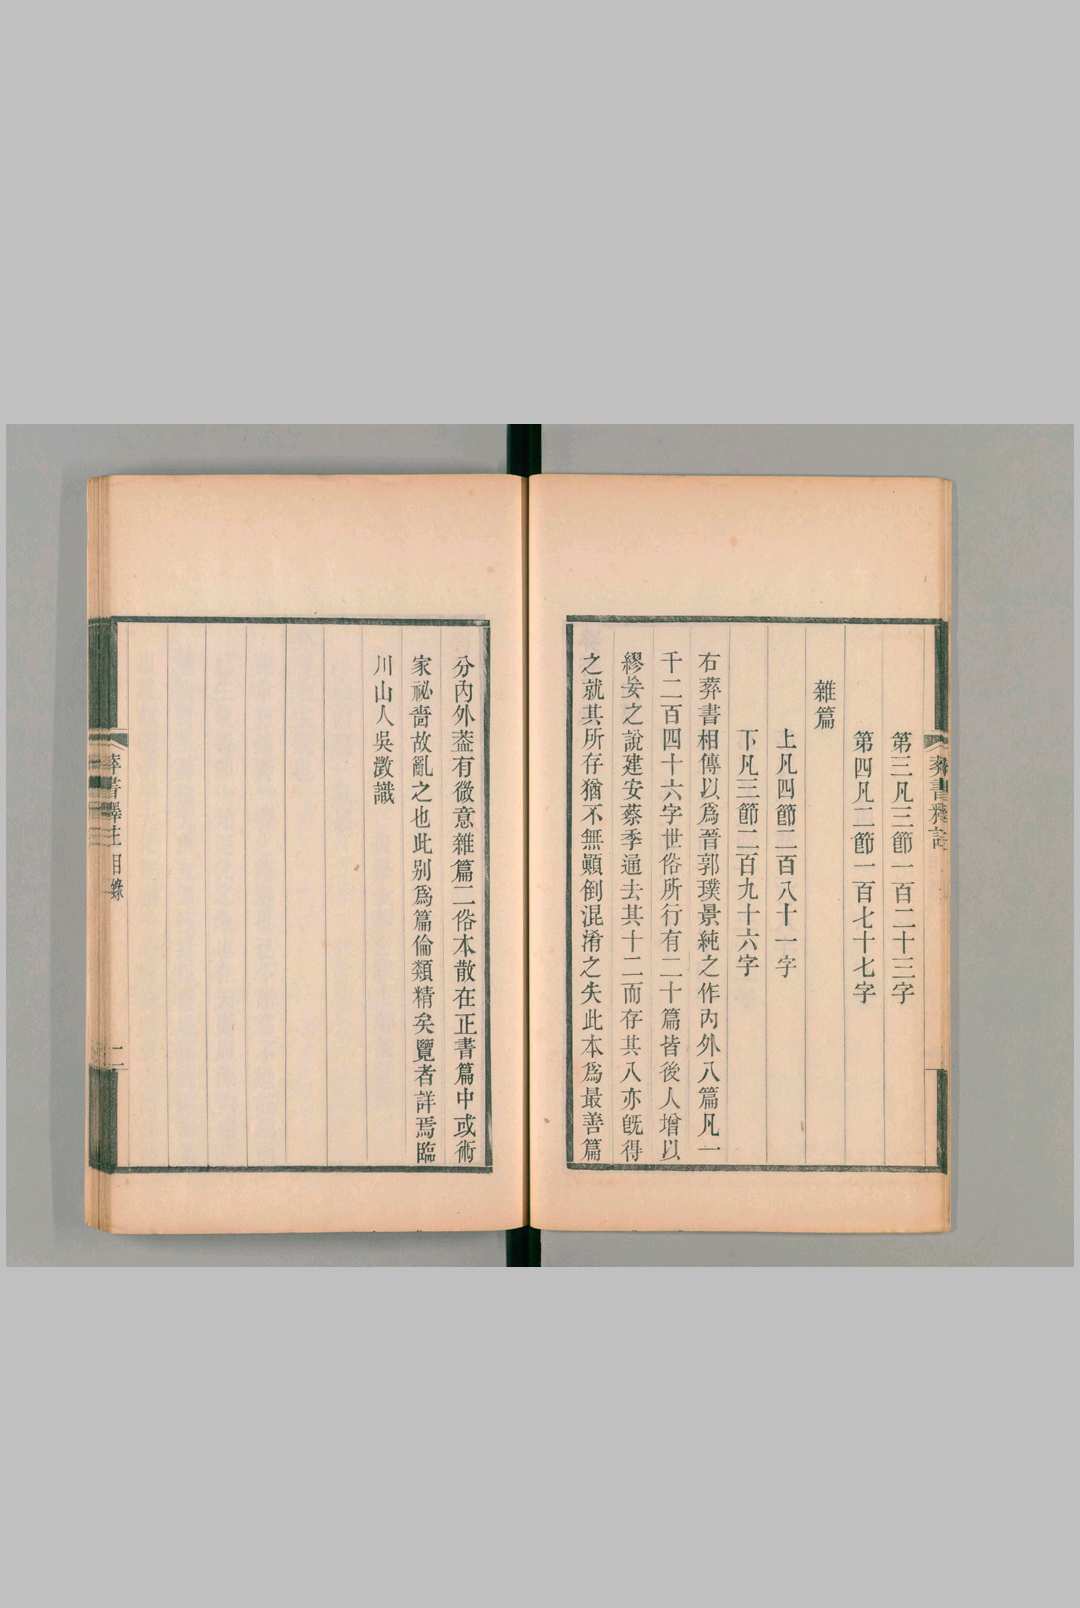 第三凡三節一百二十三字
第四凡二節一百七十七字
雜篇
上凡四節二百八十一字
下凡三節二百九十六字
右葬書相傳以爲晉郭璞景純之作內外八篇凡一
千二百四十六字世俗所行有二十篇皆後人增以
繆妄之說建安蔡季通去其十二而存其八亦旣得
之就其所存猶不無顚倒混淆之失此本爲最善篇
分內外葢有微意雜篇二俗本散在正書篇中或術
家祕嗇故亂之也此別爲篇倫類精矣覽者詳焉臨
川山人吳澂識
葬書釋注 目錄
二